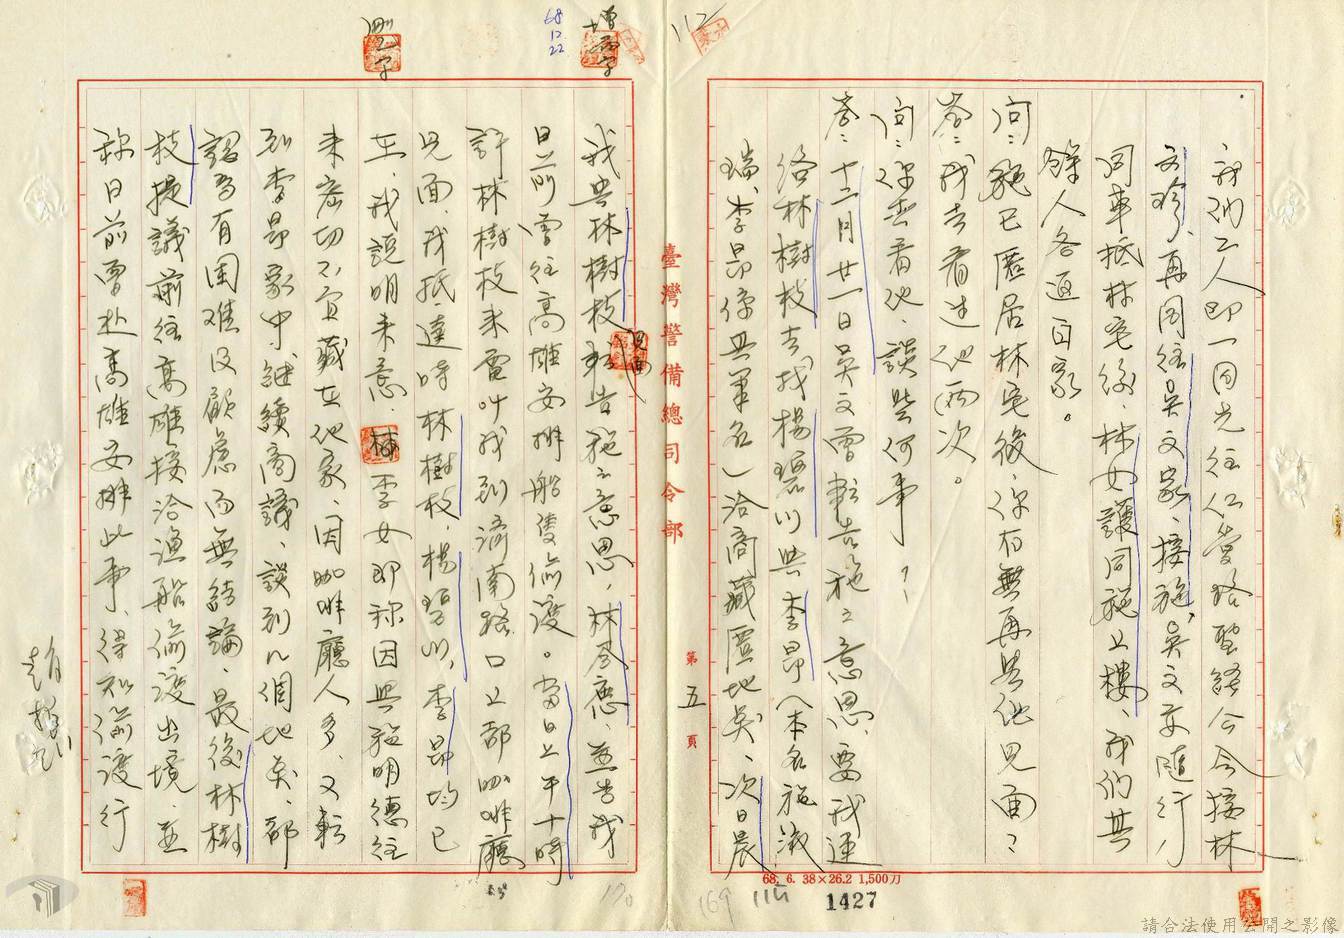 我們工人即一同先往仁愛路聖經公會接林
文珍、再同往吳文家、接施、吳文亦隨行
同車抵林宅後、林女護同施上樓、我們其
餘人各返自家。
問：施已匿居林宅後、你有無再與他見面？
答：我去看過他兩次。
問：你去看他、談些何事？
答：十二月廿一日吳文曾轉告施之意思、要我連
絡林樹枝去找楊碧川與李昂（本名施淑
端、李昂係其筆名）洽商藏匿地點、次日晨
臺灣警備總司令部
第五頁
我與林樹枝見面轉告施之意思、林答應、並告我
日前曾往高雄安排船隻偷渡。當日上午十時
許林樹枝來電叫我到濟南路口上部咖啡廳
見面、我抵達時林樹枝、楊碧川、李昂均已
在、我說明來意、李女即称因與施明德往
來密切不宜藏在他家、因咖啡廳人多、又轉
到李昂家中繼續商議、談到几個地點、都
認為有困難及顧慮而無結論、最後林樹
枝提議前往高雄接洽漁船偷渡出境、並
称日前曾赴高雄安排此事、得知偷渡行
增
字
刪
字
68
12
22
112
68. 6. 38×26.2 1,500刀
1427
169
170
請合法使用公開之影像